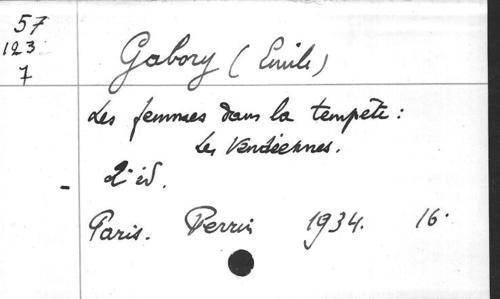 57
123
7
Gabory (Emile)
Les femmes dans la tempête :
Les Vendéennes.
2e éd.
Paris. Perrin 1934. 16°